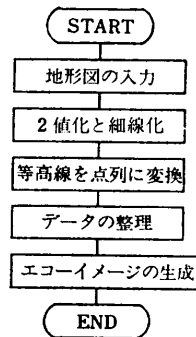 START
地形図の入力
2値化と細線化
等高線を点列に変換
データの整理
エコーイメージの生成
END